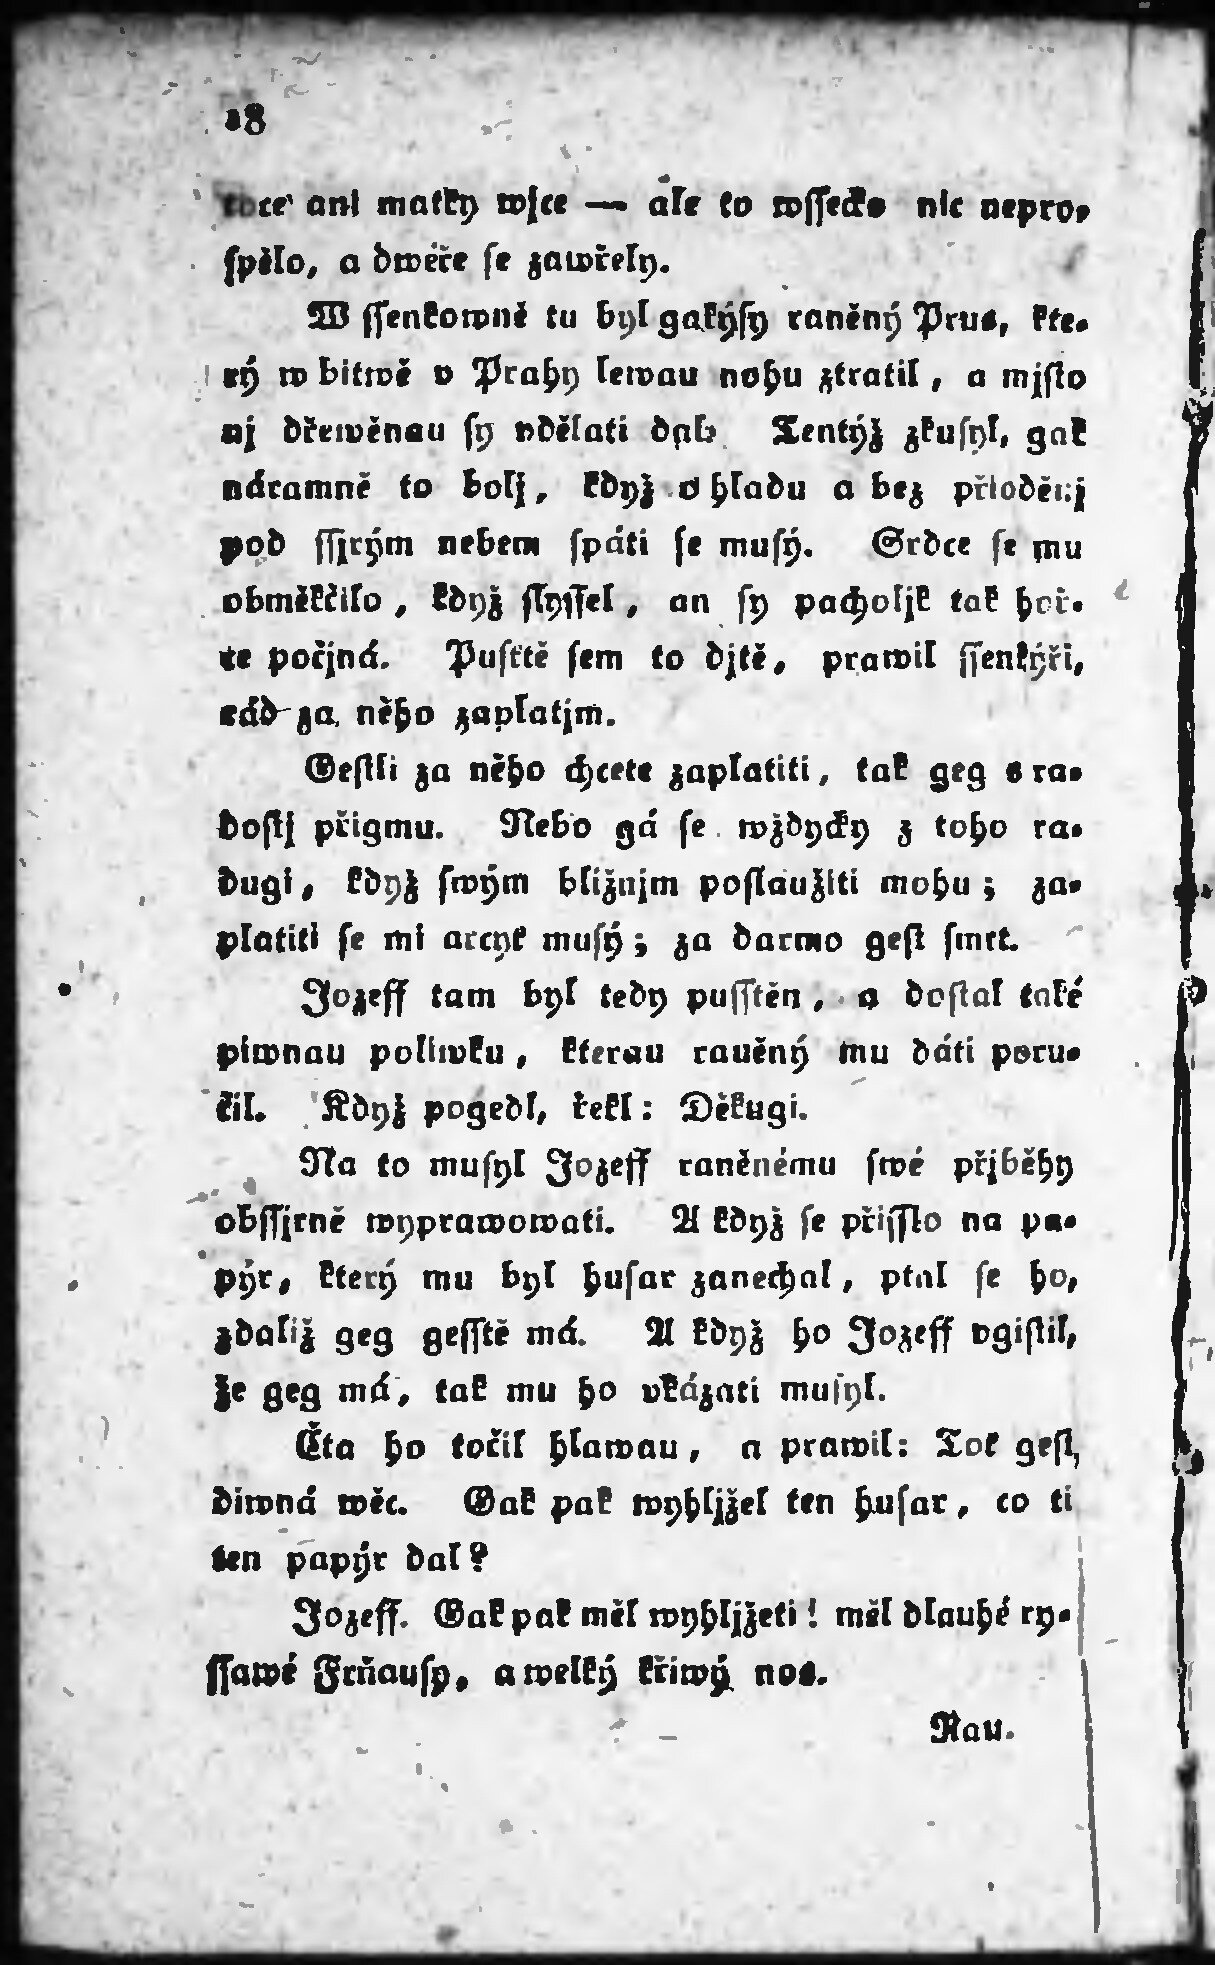 18
otce ani matky wjce — ale to wſſecko nic nepro-
ſpělo, a dwéře ſe zawřely.
W ſſenkowně tu byl gakýſy raněný Prus, kte-
rý w bitwě v Prahy lewau nohu ztratil, a mjſto
nj dřewěnau ſy vdělati dal. Tentýž zkuſyl, gak
náramně to bolj, když o hladu a bez přioděnj
pod ſſirým nebem ſpáti ſe muſý. Srdce ſe mu
obměkčilo, když ſlyſſel, an ſy pacholjk tak hoř-
ce počjná. Puſťtě ſem to djtě, prawil ſſenkýři,
rád za něho zaplatjm.
Geſtli za něho chcete zaplatiti, tak geg s ra-
doſtj přigmu. Nebo gá ſe wždycky z toho ra-
dugi, když ſwým bližnjm poſlaužiti mohu; za-
platiti ſe mi arcyť muſý; za darmo geſt ſmrt.
Jozeff tam byl tedy puſſtěn, a doſtal také
piwnau poliwku, kterau raněný mu dáti poru-
čil. Když pogedl, řekl: Děkugi.
Na to muſyl Jozeff raněnému ſwé přjběhy
obſſjrně wyprawowati. A když ſe přiſſlo na pa-
pýr, který mu byl huſar zanechal, ptal ſe ho,
zdaliž geg geſſtě má. A když ho Jozeff vgiſtil,
že geg má, tak mu ho vkázati muſyl.
Čta ho točil hlawau, a prawil: Toť geſt
diwná wěc. Gak pak wyhljžel ten huſar, co ti
ten papýr dal?
Jozeff. Gak pak měl wyhljžeti! měl dlauhé ry-
ſſawé Frňauſy, a welký křiwý nos.
Rau.